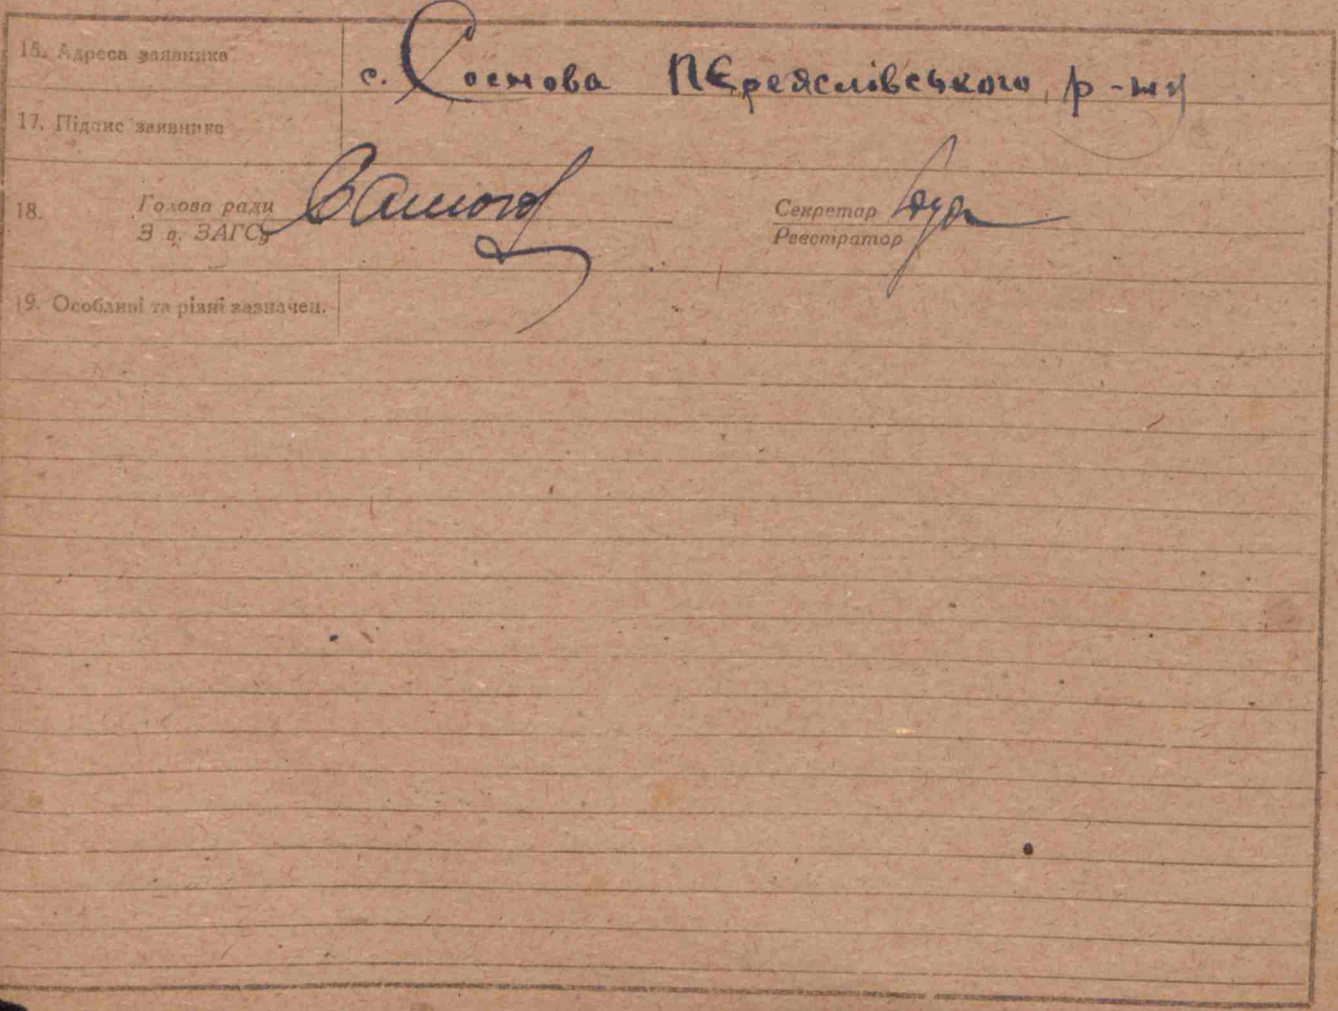 16. Адреса заявника
с. Соснова ПЄреяслівського р-ну
17. Підпис заявника
18. Голова ради Секретар
З в. ЗАГСу Реєстратор
19. Особливі та різні зазначен.